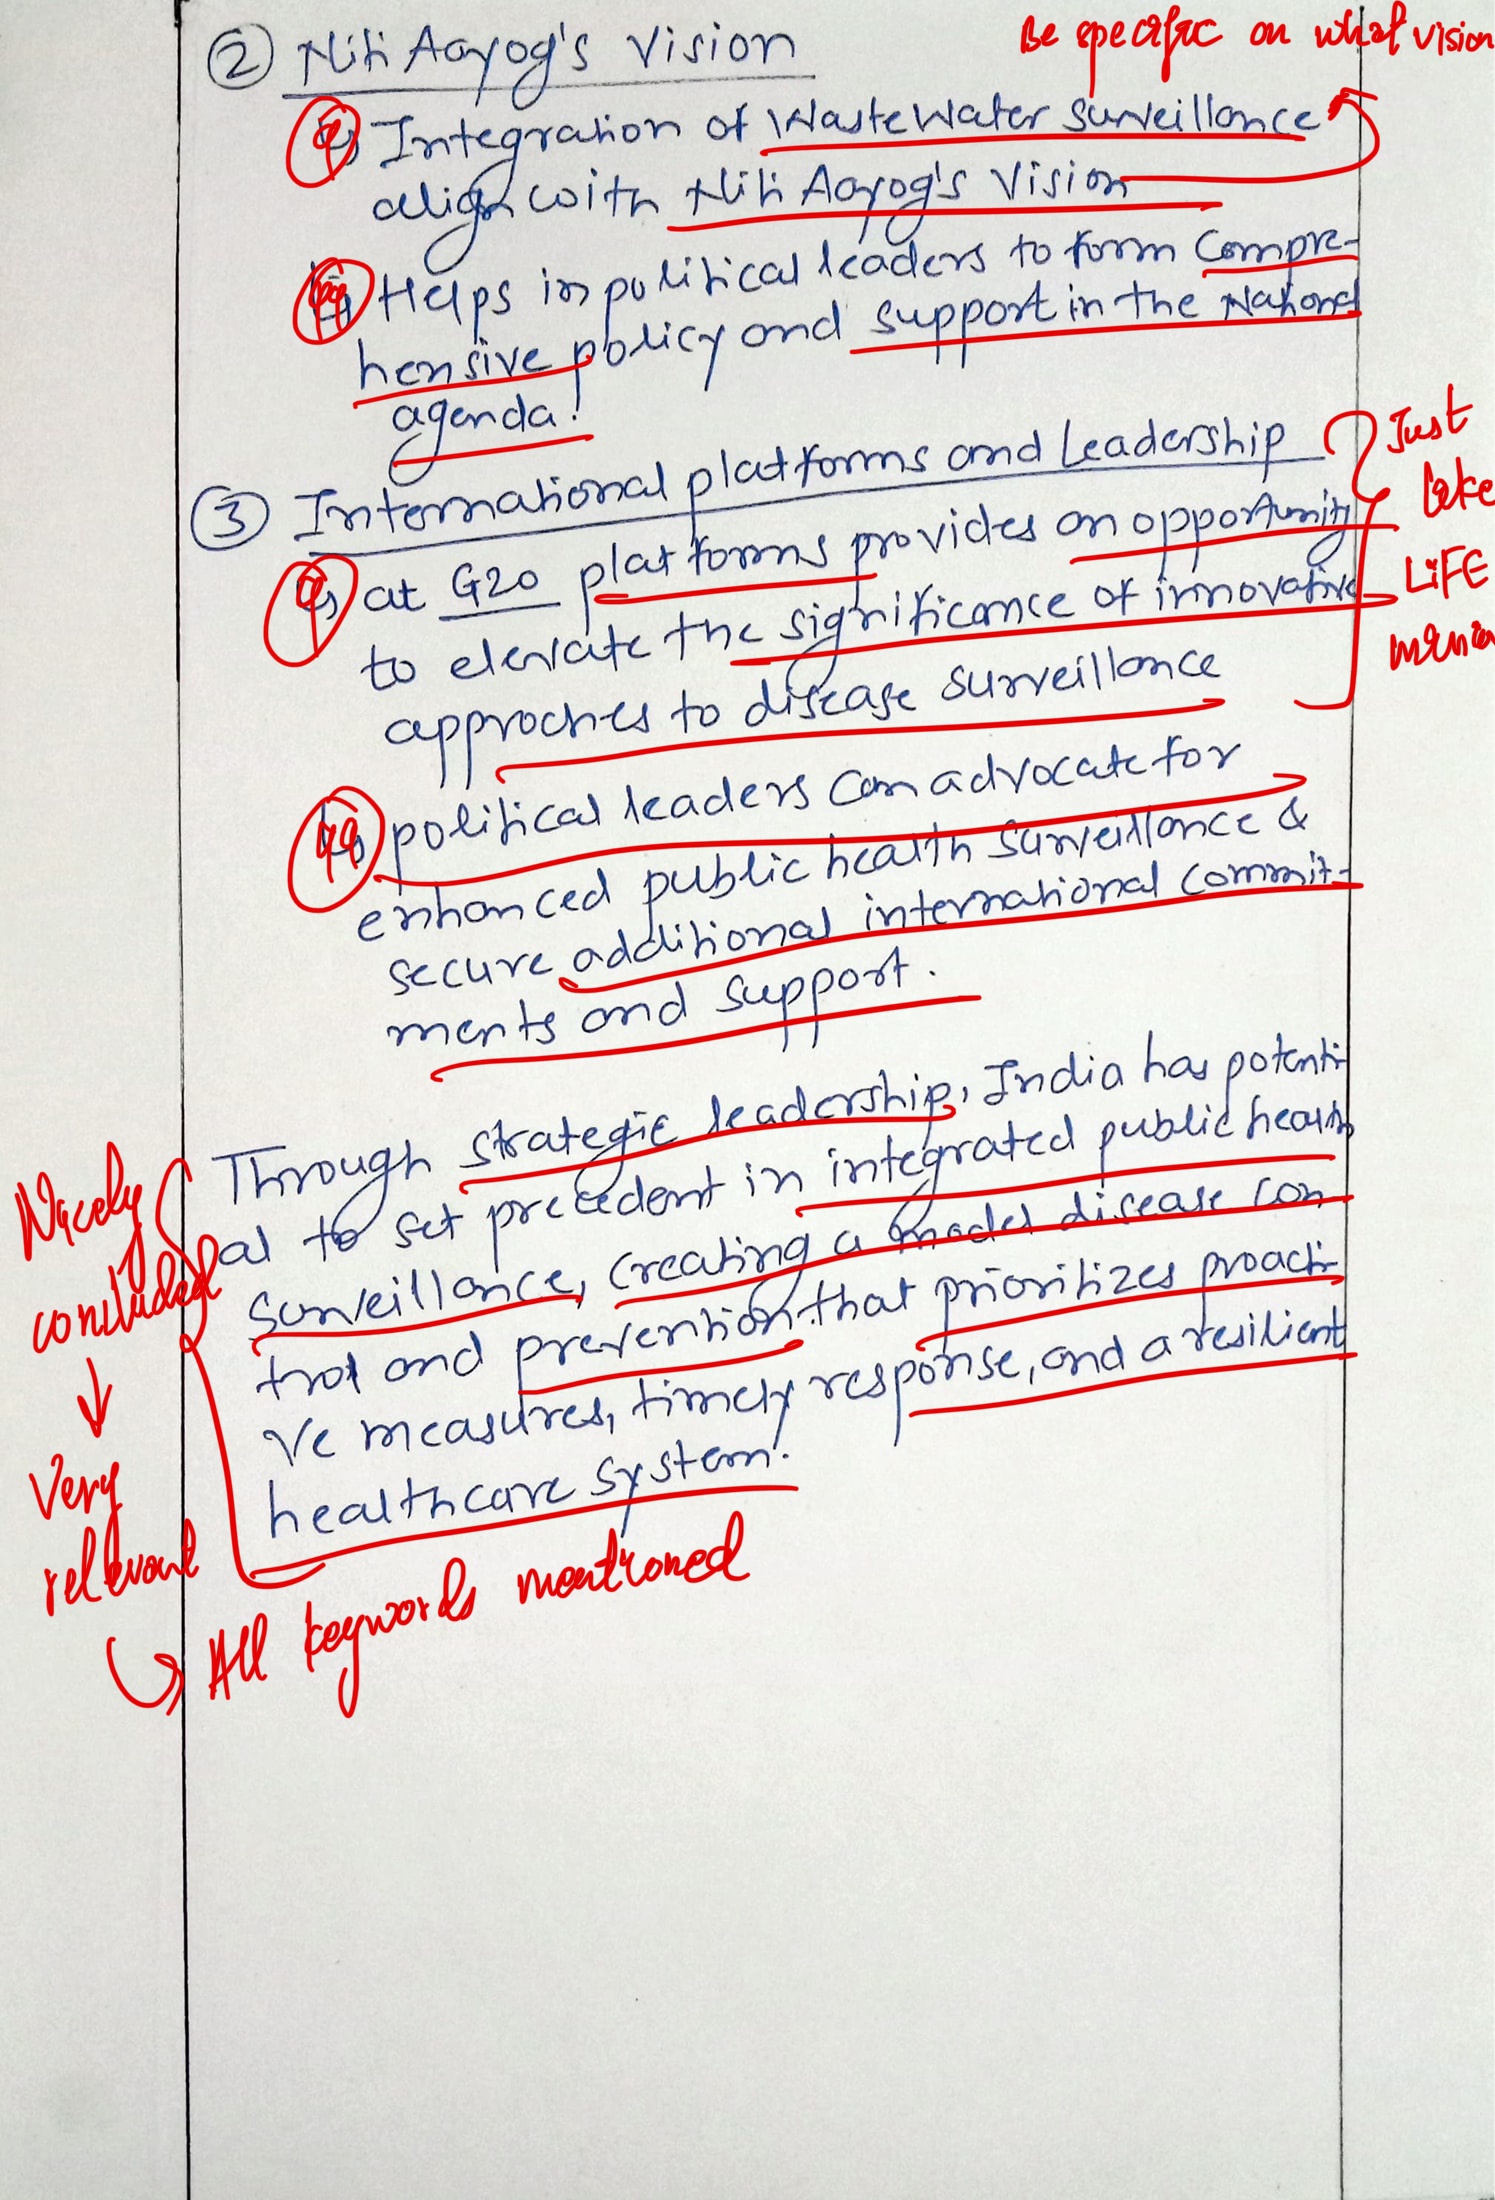 Be specific on what vision
② Niti Aayog's Vision
Integration of WasteWater Surveillance
align with Niti Aayog's Vision
Helps in political leaders to form Compre-
hensive policy and support in the National
agenda.
③ International platforms and Leadership
Just
like
LiFE
at G20 platforms provides an opportunity
to elevate the significance of innovative
approches to disease surveillance
political leaders can advocate for
enhanced public health surveillance &
secure additional international commit-
ments and support.
Through strategic leadership, India has potenti
al to set precedent in integrated public health
Surveillance, creating a model disease con
trol and prevention that prioritizes proacti-
ve measures, timely response, and a resilient
healthcare system.
Nicely
concluded
↓
Very
relevant
All keywords mentioned